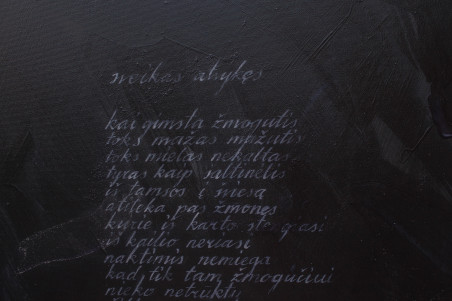 sveikas atvykęs
kai gimsta žmogutis
toks mažas mažutis
toks mielas nekaltas
tyras kaip šaltinėlis
iš tamsos į šviesą
atlieka pas žmones
kurie iš karto stengiasi
iš kailio neriasi
naktimis nemiega
kad tik tam žmogučiui
nieko netruktų